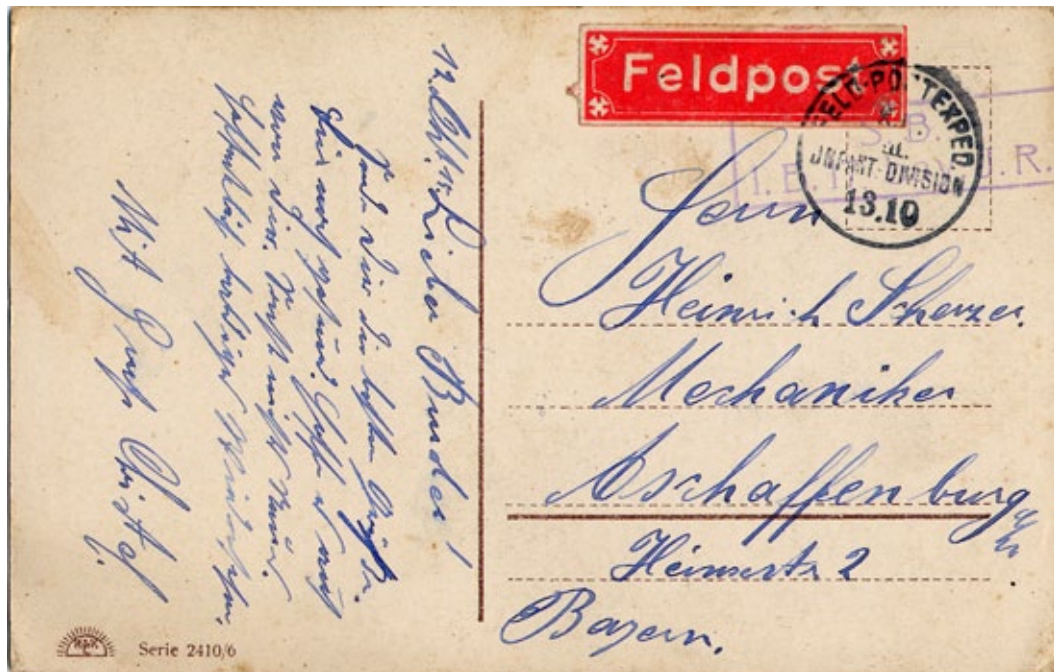 Feldpost
FELD-POSTEXPED.
INFANT.-DIVISION
13.10
S. B.
I. B. J. R.
Herrn
Heinrich Scherzer
Mechaniker
Aschaffenburg
a/M
Heimerstr 2
Bayern.
12. Okt. 15. Lieber Bruder!
Sende Dir die besten Grüße.
Bin noch gesund. Hoffe es auch
von Dir. Sonst nichts Neues.
Hoffentlich baldiges Wiedersehn.
Mit Gruß Christof
Serie 2410/6